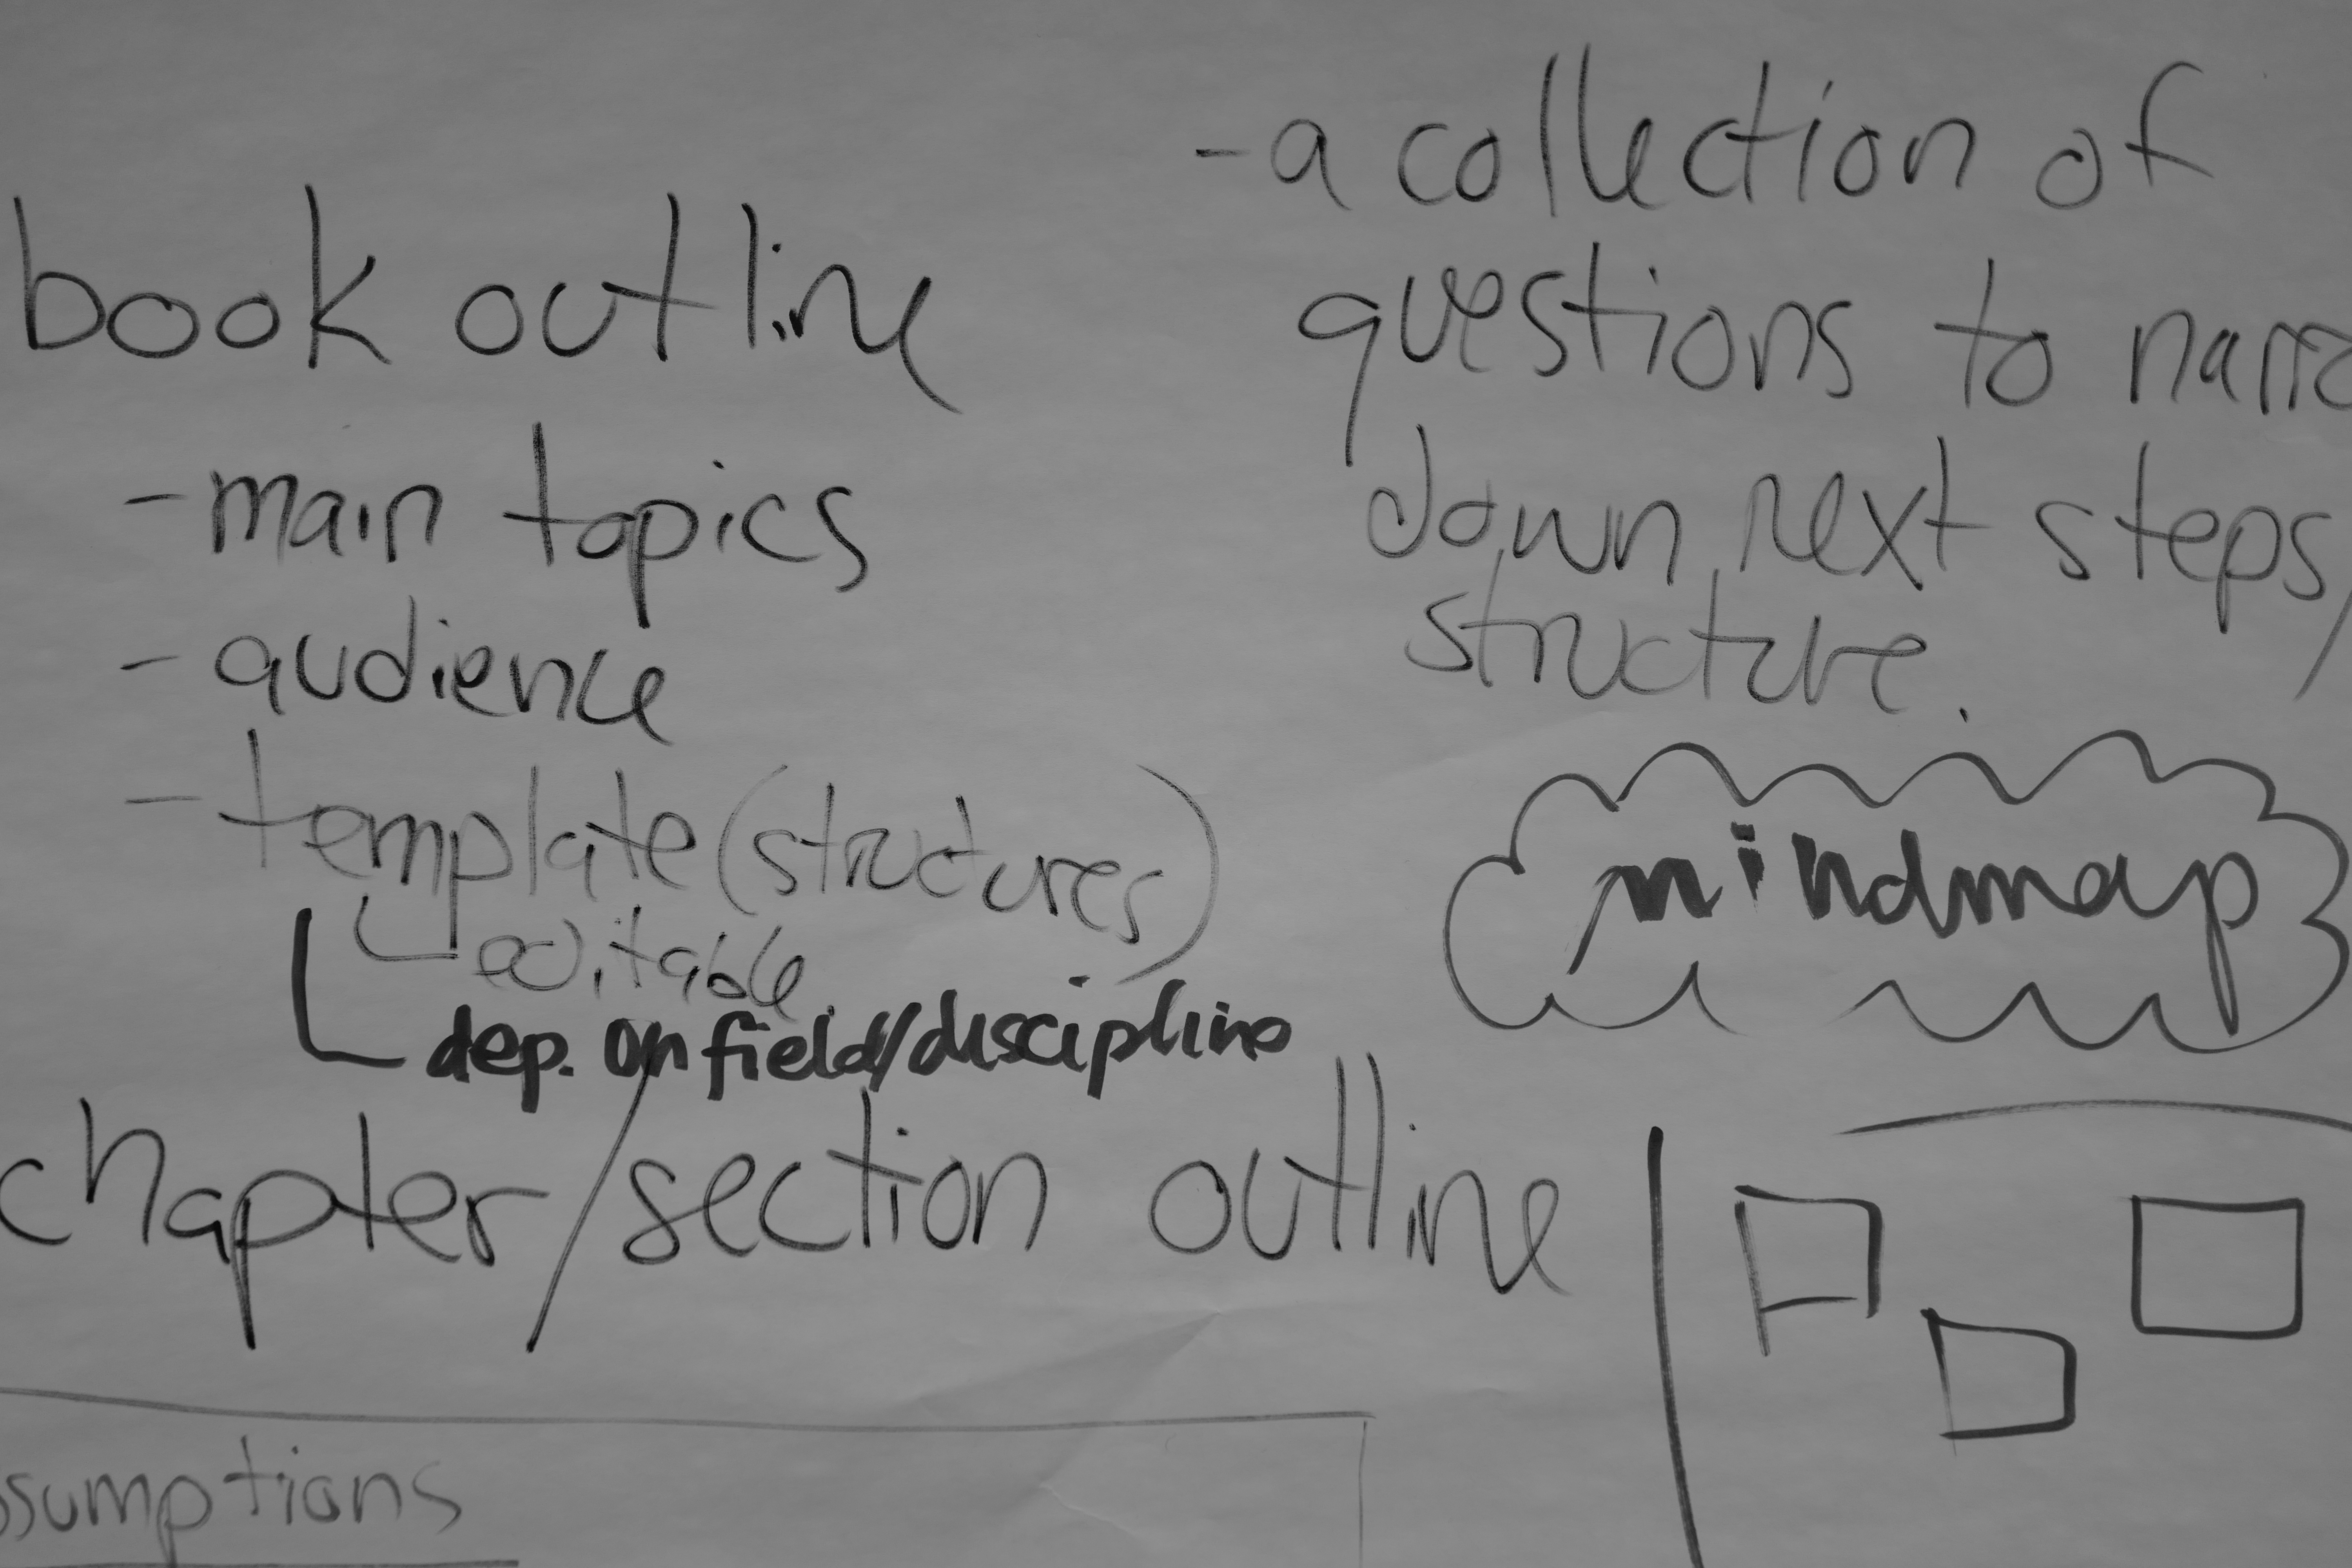 book outline
- main topics
- audience
- template (structures)
editable
dep. on field/discipline
chapter/section outline
ssumptions
- a collection of
questions to narro
down next steps/
structure.
mindmap